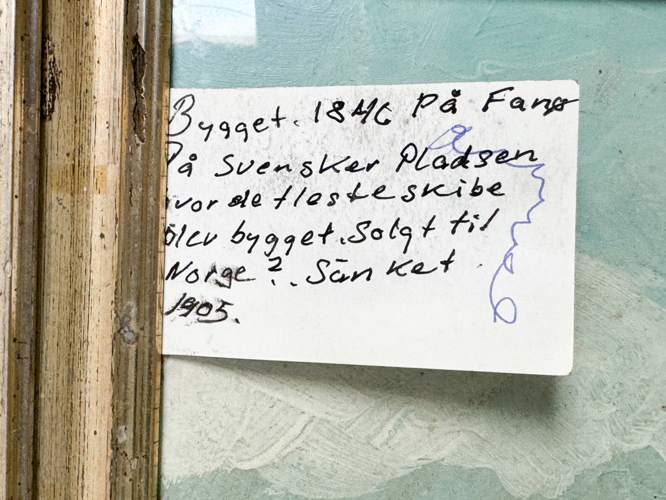 Bygget. 1846 På Fanø
På Svensker Pladsen
hvor de fleste skibe
blev bygget. Solgt til
Norge ?.. Sänket.
1905.